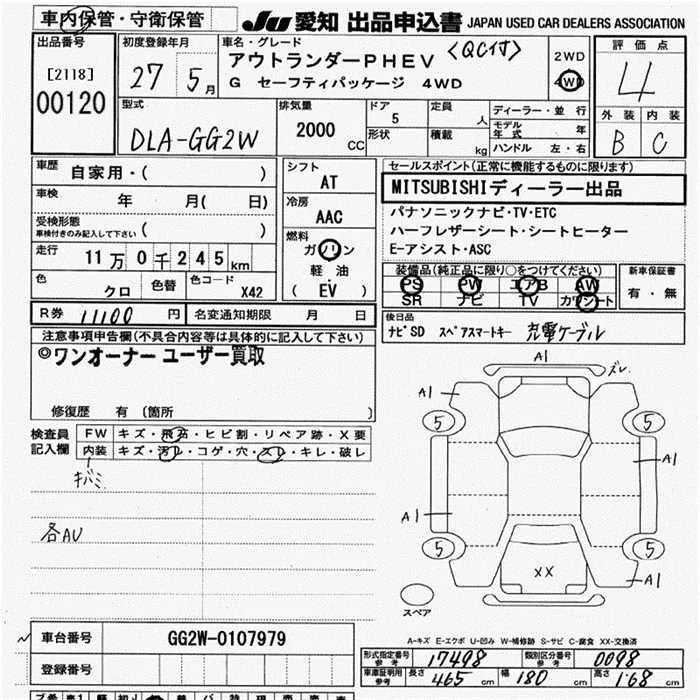 車内保管・守衛保管
JU 愛知 出品申込書 JAPAN USED CAR DEALERS ASSOCIATION
出品番号
[2118]
00120
初度登録年月
27 5月
車名・グレード
アウトランダーPHEV 〈QC付〉
G セーフティパッケージ 4WD
2WD
4WD
評価点
4
外装 内装
B C
型式
DLA-GG2W
排気量
2000 CC
ドア
5
形状
定員
人
積載
kg
ディーラー・並行
モデル年式 年
ハンドル 左・右
車歴 自家用・( )
車検 年 月( 日)
受検形態
車検付きのみ記入して下さい ( )
走行 11万0千245km
色 クロ 色替 色コード X42
シフト
AT
冷房
AAC
燃料
ガソリン
軽・油
( EV )
セールスポイント(正常に機能するものに限ります)
MITSUBISHIディーラー出品
パナソニックナビ・TV・ETC
ハーフレザーシート・シートヒーター
E-アシスト・ASC
装備品(純正品に限り○をつけてください)
PS PW エアB AW
SR ナビ TV カワシート
新車保証書
有・無
R券 11100 円 名変通知期限 月 日
後日品
ナビSD スペアスマートキー 充電ケーブル
注意事項申告欄(不具合内容等は具体的に記入して下さい)
◎ワンオーナー ユーザー買取
修復歴 有(箇所 )
検査員
記入欄
FW キズ・飛石・ヒビ割・リペア跡・X要
内装 キズ・汚レ・コゲ・穴・スレ・キレ・破レ
キバミ
各AU
A1
ズレ
A1
5
5
A1
A1
5
5
XX
A1
スペア
A-キズ E-エクボ U-凹み W-補修跡 S-サビ C-腐食 XX-交換済
車台番号 GG2W-0107979
登録番号
形式指定番号 参考 17498 類別区分番号 参考 0098
車庫証明用 参考 長さ 465 cm 幅 180 cm 高さ 168 cm